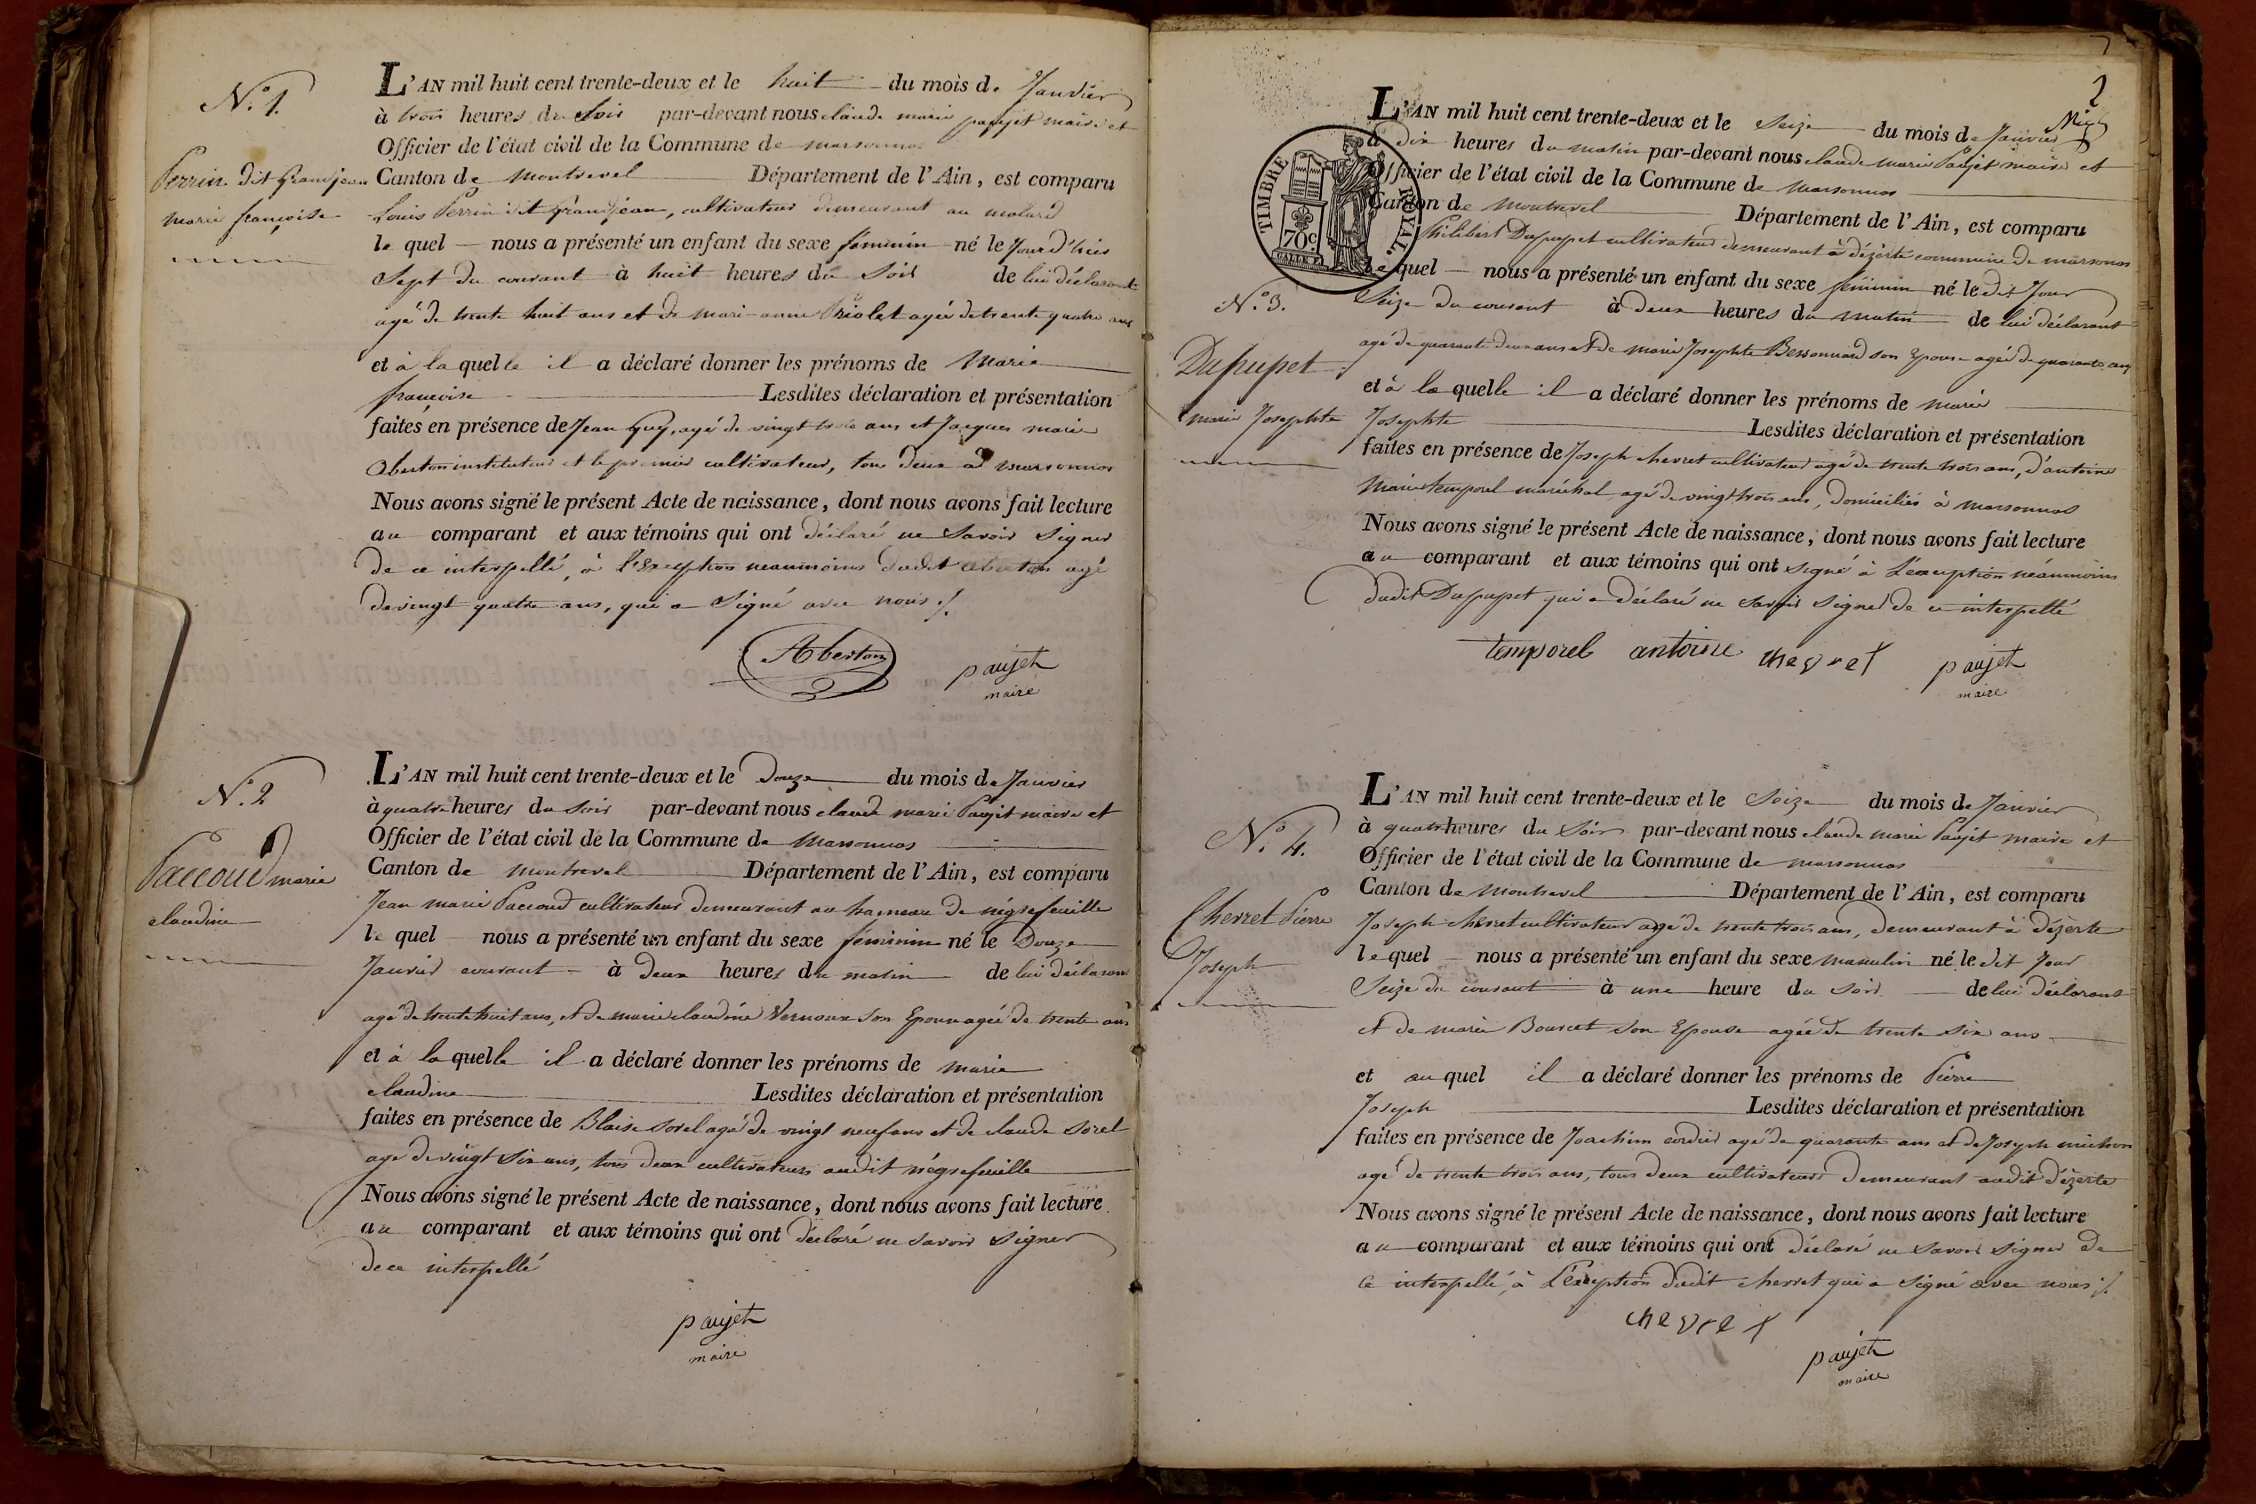 N.º 1.
Perrin dit Grandjean
marie françoise
L'AN mil huit cent trente-deux et le huit du mois de Janvier
à trois heures du Soir par-devant nous claude marie paujet maire et
Officier de l'état civil de la Commune de marsonnas
Canton de montrevel Département de l'Ain, est comparu
Louis Perrin dit Grandjean, cultivateur demeurant au molard
le quel nous a présenté un enfant du sexe féminin né le Jour d'hier
Sept du courant à huit heures du Soir de lui déclarant
agé de trente huit ans et de marie anne agée de trente quatre ans
et à laquelle il a déclaré donner les prénoms de Marie
françoise Lesdites déclaration et présentation
faites en présence de Jean Guy, agé de vingt trois ans et Jacques marie
Aberton instituteur et le premier cultivateur, tous deux à marsonnas
Nous avons signé le présent Acte de naissance, dont nous avons fait lecture
au comparant et aux témoins qui ont déclaré ne Savoir Signer
de ce interpellé, à l'Exception néanmoins dudit aberton agé
de vingt quatre ans, qui a Signé avec nous ./.
Aberton
paujet
maire
N.º 2
Paccoud marie
claudine
L'AN mil huit cent trente-deux et le Douze du mois de Janvier
à quatre heures du Soir par-devant nous claude marie Paujet maire et
Officier de l'état civil de la Commune de Marsonnas
Canton de montrevel Département de l'Ain, est comparu
Jean marie Paccoud cultivateur demeurant au hameau de négrefeuille
le quel nous a présenté un enfant du sexe féminin né le Douze
Janvier courant à deux heures du matin de lui déclarant
agé de trente huit ans, et de marie claudine Vernoux Son Epouse agée de trente ans
et à laquelle il a déclaré donner les prénoms de marie
claudine Lesdites déclaration et présentation
faites en présence de Blaise Sorel agé de vingt neuf ans et de claude Sorel
agé de vingt Six ans, tous deux cultivateurs audit négrefeuille
Nous avons signé le présent Acte de naissance, dont nous avons fait lecture
au comparant et aux témoins qui ont déclaré ne Savoir Signer
de ce interpellé
paujet
maire
2
TIMBRE ROYAL.
70c.
N.º 3.
Dupupet
marie Josephte
L'AN mil huit cent trente-deux et le Seize du mois de Janvier
à dix heures du matin par-devant nous claude marie Paujet maire et
Officier de l'état civil de la Commune de Marsonnas
Canton de Montrevel Département de l'Ain, est comparu
Philibert Dupupet cultivateur demeurant à dézerte commune de marsonnas
le quel nous a présenté un enfant du sexe féminin né le dit Jour
Seize du courant à deux heures du matin de lui déclarant
agé de quarante deux ans et de marie Josephte Bessonnard son Epouse agée de quarante ans
et à laquelle il a déclaré donner les prénoms de marie
Josephte Lesdites déclaration et présentation
faites en présence de Joseph chevret cultivateur agé de trente trois ans, d'antoine
Marie temporel maréchal agé de vingt trois ans, domiciliés à marsonnas
Nous avons signé le présent Acte de naissance, dont nous avons fait lecture
au comparant et aux témoins qui ont signé à L'exception néanmoins
dudit Dupupet qui a déclaré ne savoir Signer de ce interpellé
temporel antoine chevret paujet
maire
N.º 4.
Chevret Pierre
Joseph
L'AN mil huit cent trente-deux et le Seize du mois de Janvier
à quatre heures du Soir par-devant nous claude marie Paujet maire et
Officier de l'état civil de la Commune de marsonnas
Canton de Montrevel Département de l'Ain, est comparu
Joseph chevret cultivateur agé de trente trois ans, demeurant à dézerte
le quel nous a présenté un enfant du sexe masculin né le dit Jour
Seize du courant à une heure du Soir de lui déclarant
et de marie Bourcet Son Epouse agée de trente Six ans
et auquel il a déclaré donner les prénoms de Pierre
Joseph Lesdites déclaration et présentation
faites en présence de Joachim cordier agé de quarante ans et de Joseph michon
agé de trente trois ans, tous deux cultivateurs demeurant audit dézerte
Nous avons signé le présent Acte de naissance, dont nous avons fait lecture
au comparant et aux témoins qui ont déclaré ne Savoir Signer de
ce interpellé, à L'éxception dudit chevret qui a Signé avec nous ./.
chevret
paujet
maire